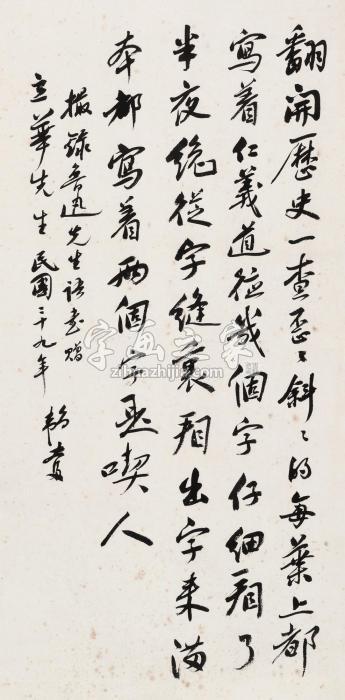 翻開歷史一查歪々斜々的每葉上都
寫着仁義道德幾個字仔細看了
半夜總從字縫裏看出字來滿
本都寫着兩個字是喫人
撮錄魯迅先生語書贈
立華先生 民國三十九年
字画之家
zihuazhijia.com